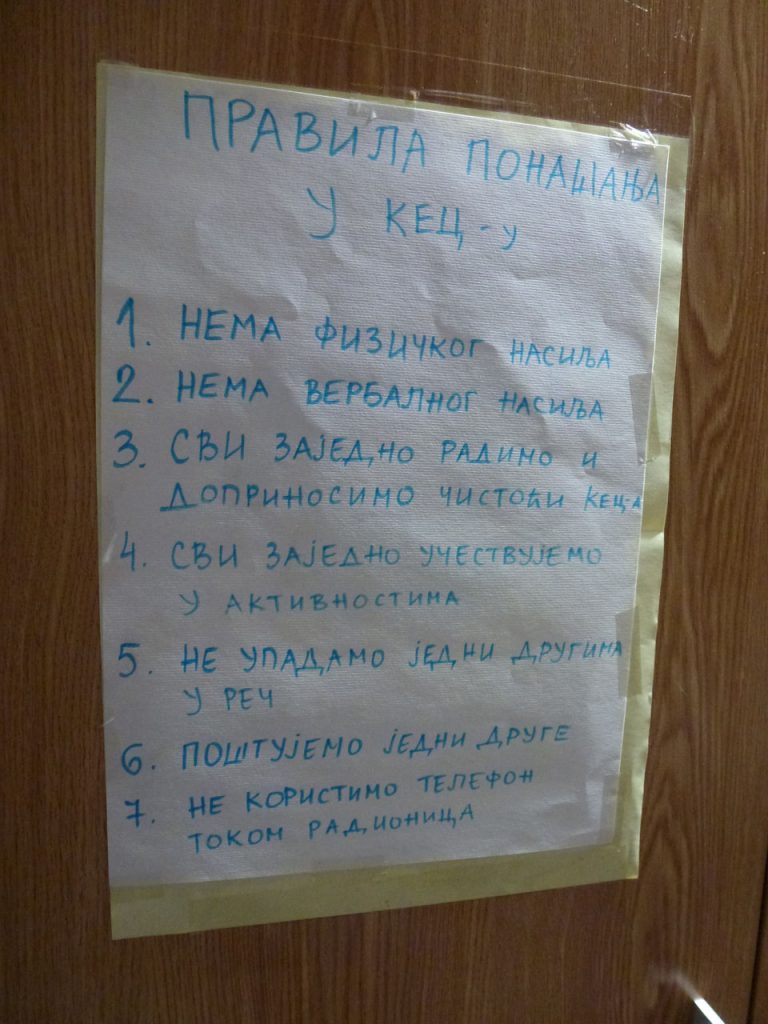 ПРАВИЛА ПОНАШАЊА
У КЕЦ-у
1. НЕМА ФИЗИЧКОГ НАСИЉА
2. НЕМА ВЕРБАЛНОГ НАСИЉА
3. СВИ ЗАЈЕДНО РАДИМО И
ДОПРИНОСИМО ЧИСТОЋИ КЕЦ-А
4. СВИ ЗАЈЕДНО УЧЕСТВУЈЕМО
У АКТИВНОСТИМА
5. НЕ УПАДАМО ЈЕДНИ ДРУГИМА
У РЕЧ
6. ПОШТУЈЕМО ЈЕДНИ ДРУГЕ
7. НЕ КОРИСТИМО ТЕЛЕФОН
ТОКОМ РАДИОНИЦА